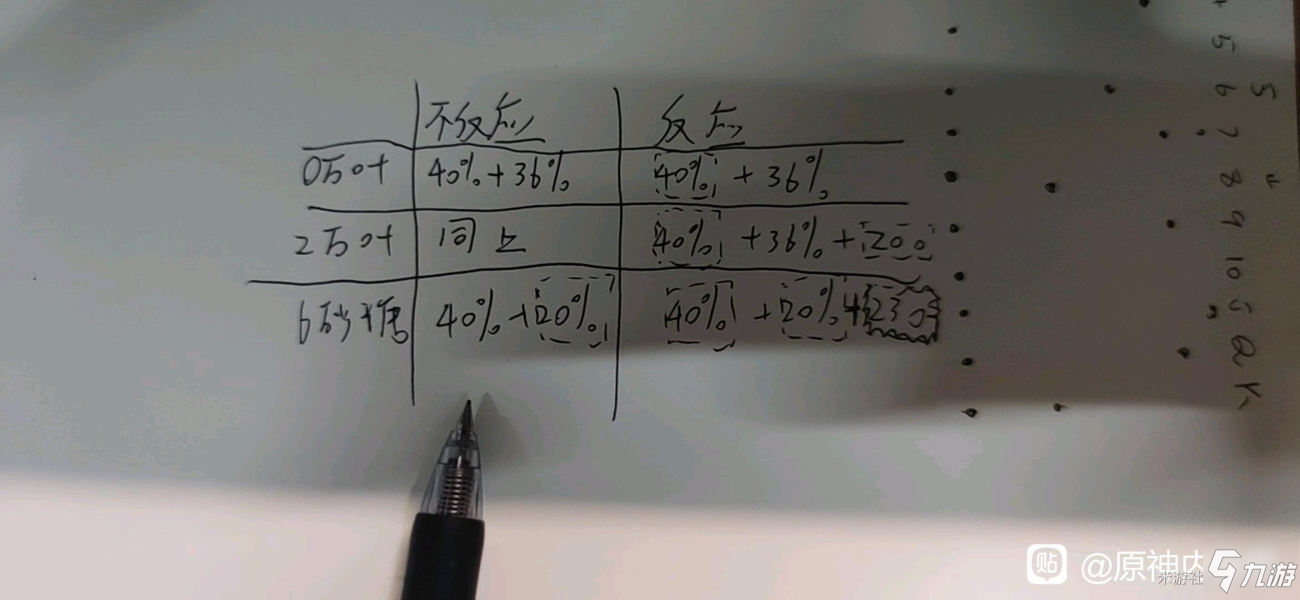 不反应 反应
0万叶 40%+36% 40%+36%
2万叶 同上 40%+36%+200
6砂糖 40%+20% 40%+20%+230
5
6
7
8
9
10
J
Q
K
5
贴 @原神内
米游社 九游